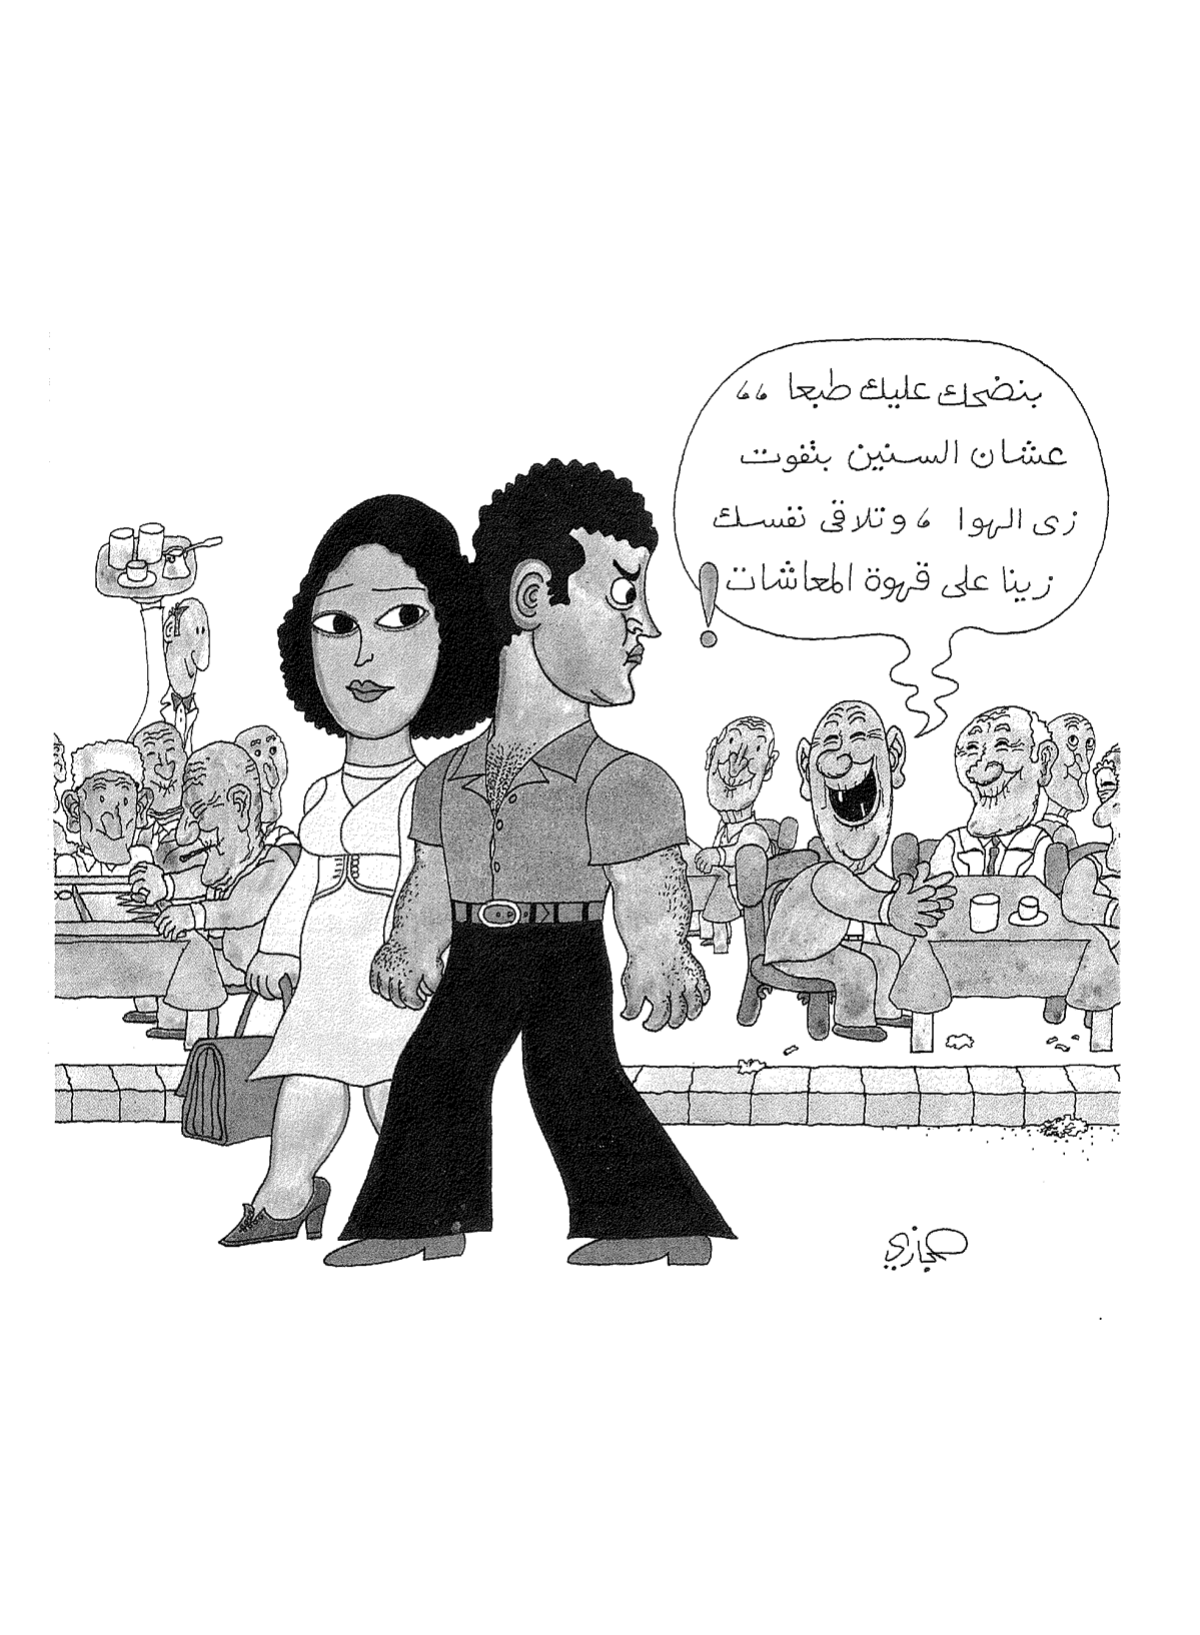 بنضحك عليك طبعا ،،
عشان السنين بتفوت
زى الهوا ، وتلاقى نفسك
زينا على قهوة المعاشات !
حجازي